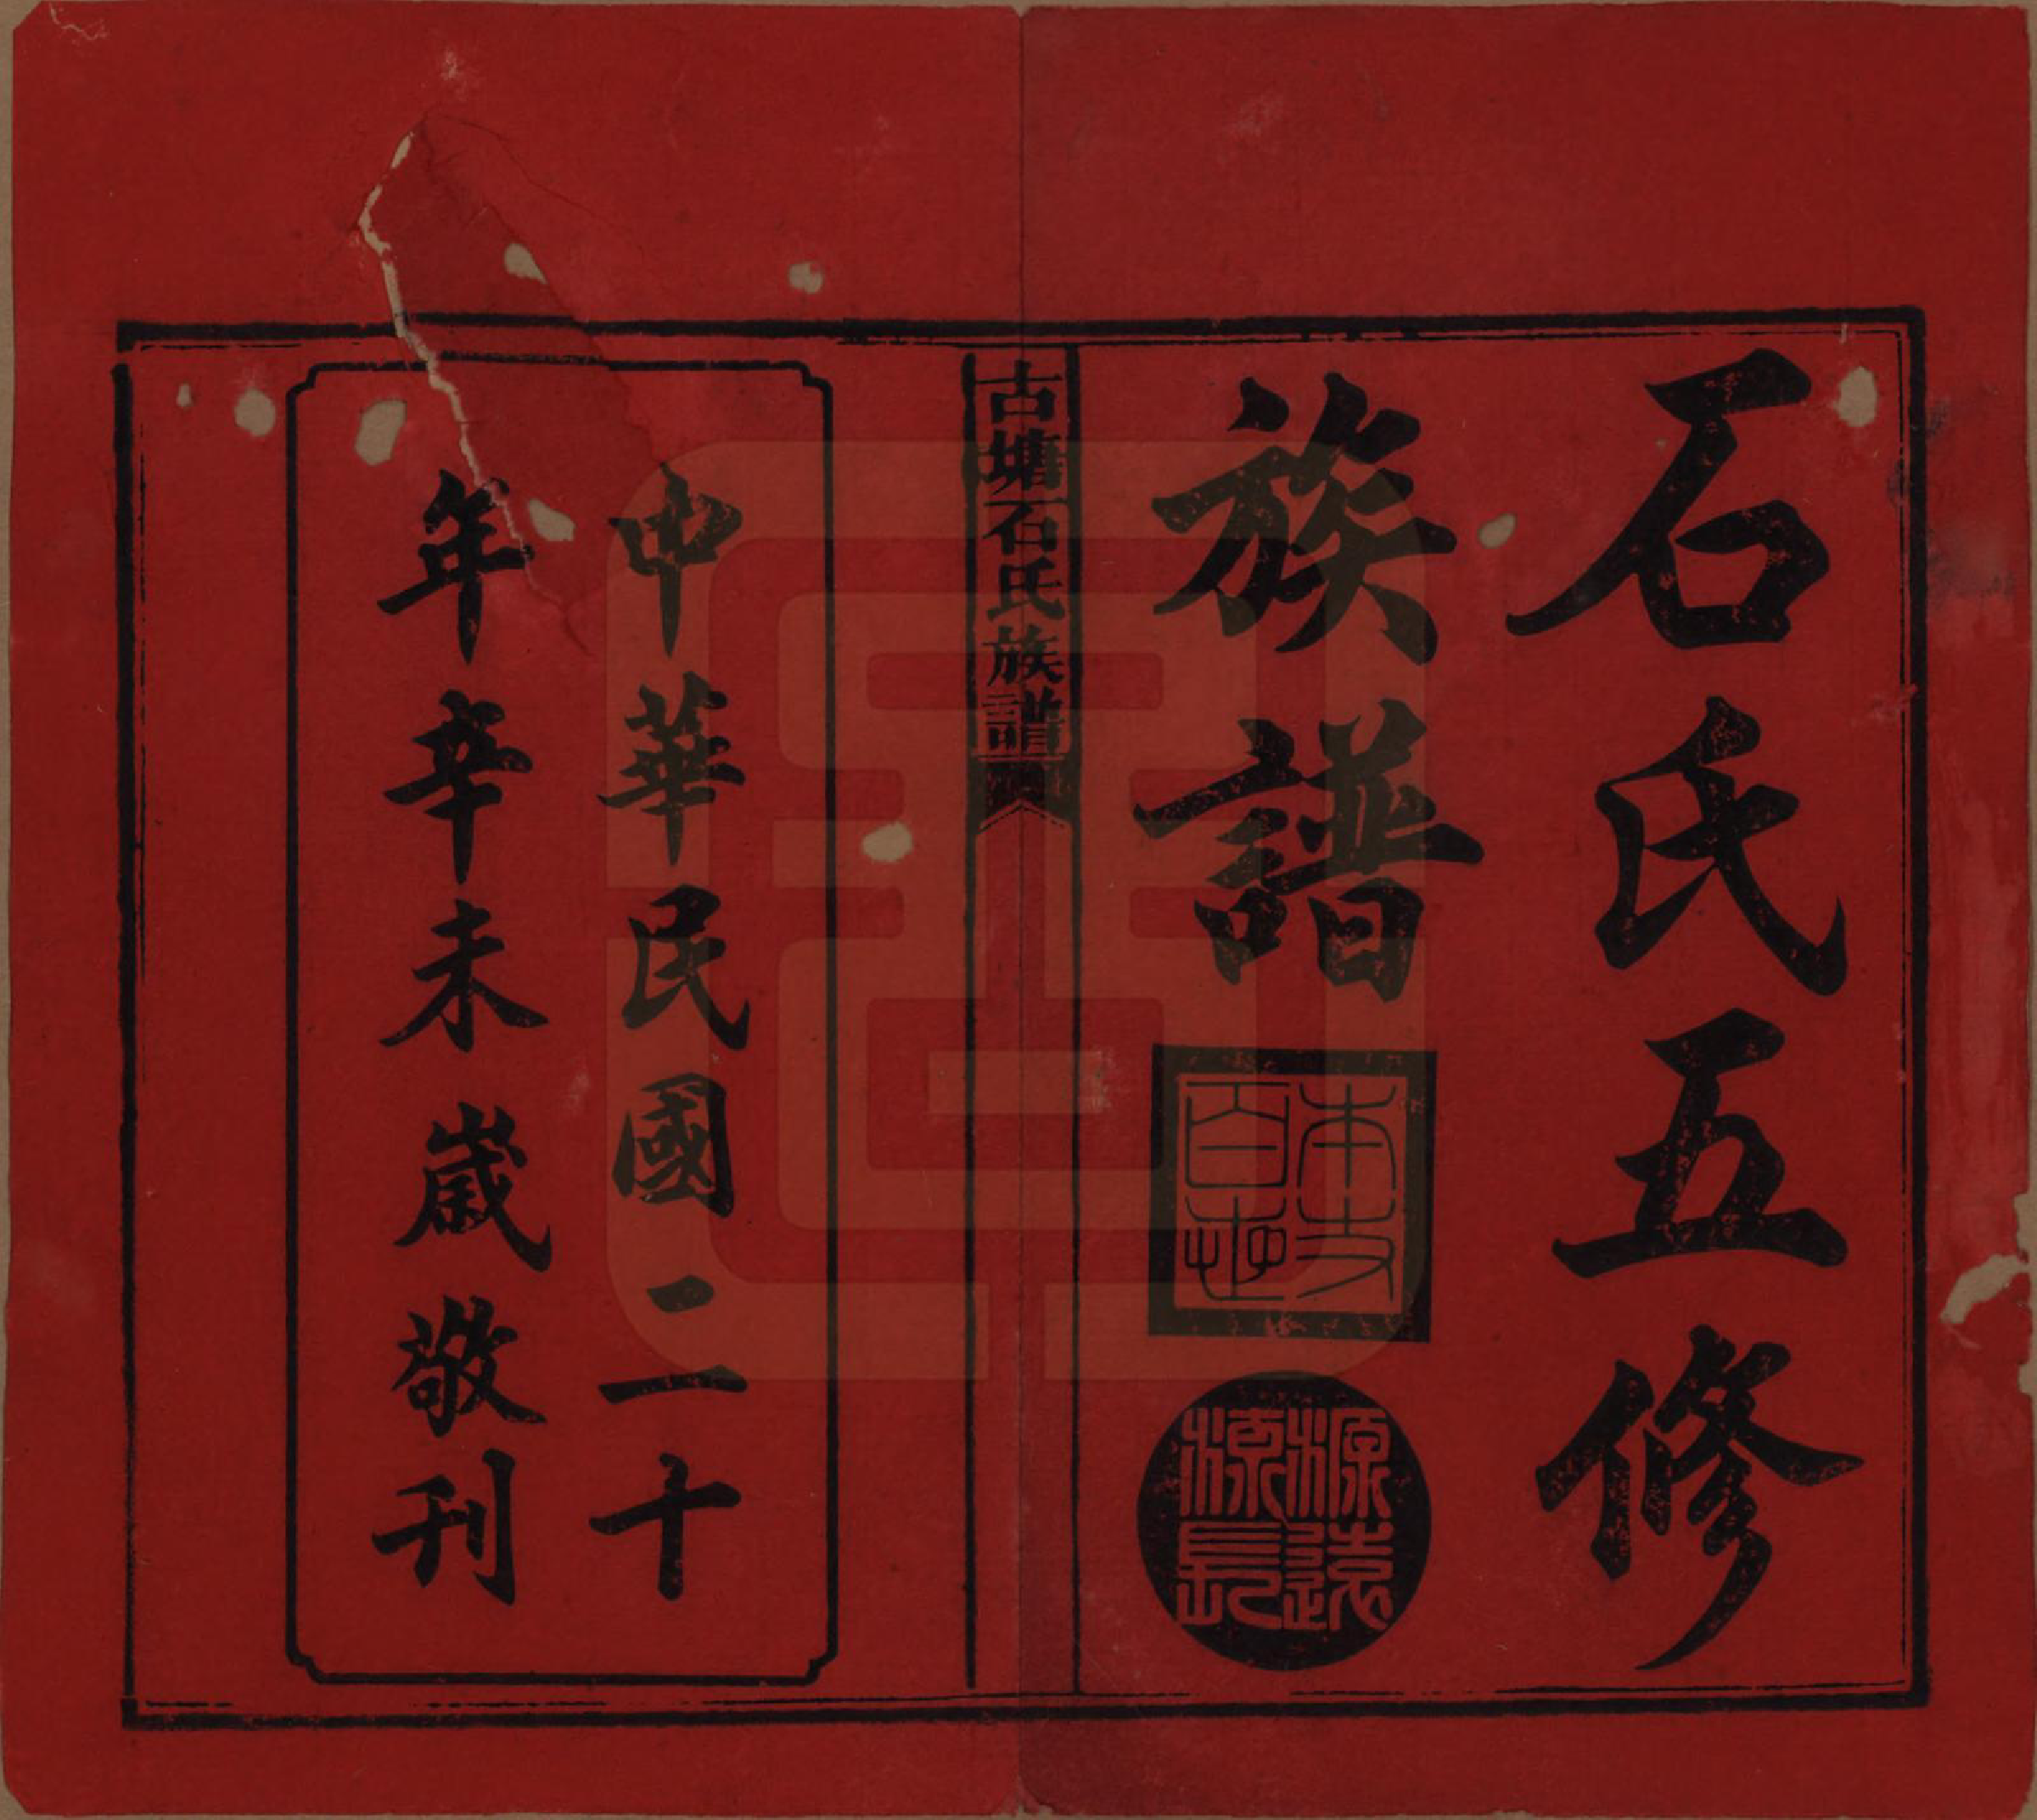 石氏五修
族譜
本支
百世
源遠
流長
古塘石氏族譜
中華民國二十
年辛未歲敬刊